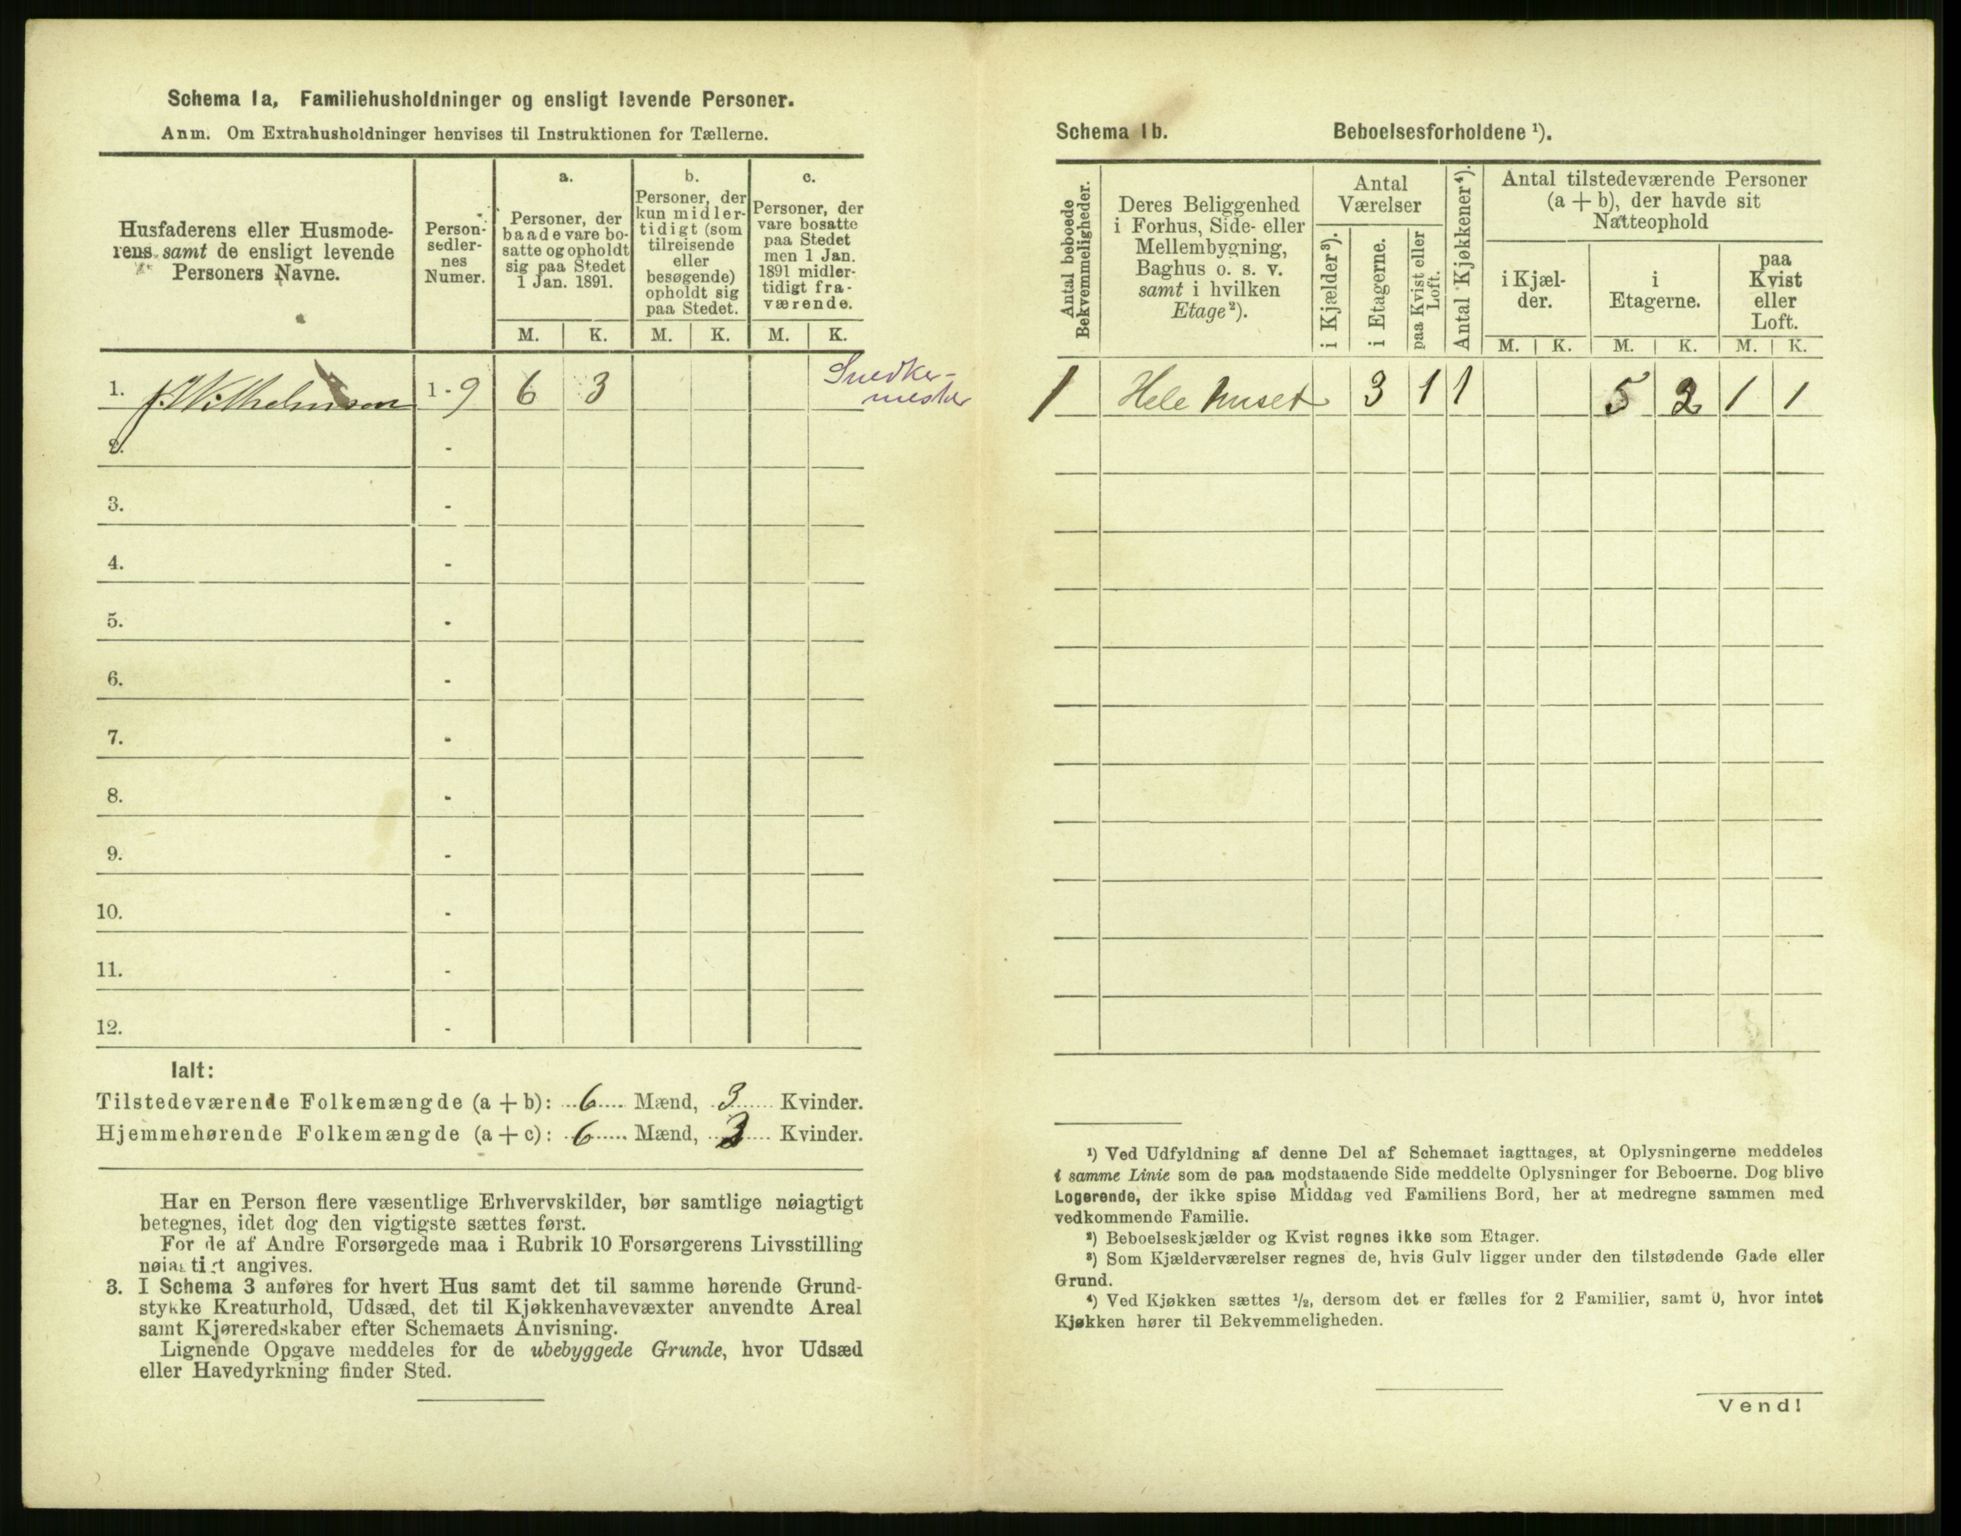 Schema 1a, Familiehusholdninger og ensligt levende Personer.
Anm. Om Extrahusholdninger henvises til Instruktionen for Tællerne.
Husfaderens eller Husmode-
rens samt de ensligt levende
Personers Navne.
Person-
sedler-
nes
Numer.
a.
Personer, der
baade vare bo-
satte og opholdt
sig paa Stedet
1 Jan. 1891.
b.
Personer, der
kun midler-
tidigt (som
tilreisende
eller
besøgende)
opholdt sig
paa Stedet.
c.
Personer, der
vare bosatte
paa Stedet
men 1 Jan.
1891 midler-
tidigt fra-
værende.
M. K. M. K. M. K.
1. J. Wilhelmsen 1 - 9 6 3 Snedker-
mester
2. -
3. -
4. -
5. -
6. -
7. -
8. -
9. -
10. -
11. -
12. -
Ialt:
Tilstedeværende Folkemængde (a + b): 6 Mænd, 3 Kvinder.
Hjemmehørende Folkemængde (a + c): 6 Mænd, 3 Kvinder.
Har en Person flere væsentlige Erhvervskilder, bør samtlige nøiagtigt
betegnes, idet dog den vigtigste sættes først.
For de af Andre Forsørgede maa i Rubrik 10 Forsørgerens Livsstilling
nøiagtigt angives.
3. I Schema 3 anføres for hvert Hus samt det til samme hørende Grund-
stykke Kreaturhold, Udsæd, det til Kjøkkenhavevæxter anvendte Areal
samt Kjøreredskaber efter Schemaets Anvisning.
Lignende Opgave meddeles for de ubebyggede Grunde, hvor Udsæd
eller Havedyrkning finder Sted.
Schema 1b. Beboelsesforholdene ¹).
Antal beboede
Bekvemmeligheder.
Deres Beliggenhed
i Forhus, Side- eller
Mellembygning,
Baghus o. s. v.
samt i hvilken
Etage²).
Antal
Værelser
i Kjælder³).
i Etagerne.
paa Kvist eller
Loft.
Antal Kjøkkener⁴).
Antal tilstedeværende Personer
(a + b), der havde sit
Natteophold
i Kjæl-
der.
i
Etagerne.
paa
Kvist
eller
Loft.
M. K. M. K. M. K.
1 Hele huset 3 1 1 5 2 1 1
¹) Ved Udfyldning af denne Del af Schemaet iagttages, at Oplysningerne meddeles
i samme Linie som de paa modstaaende Side meddelte Oplysninger for Beboerne. Dog blive
Logerende, der ikke spise Middag ved Familiens Bord, her at medregne sammen med
vedkommende Familie.
²) Beboelseskjælder og Kvist regnes ikke som Etager.
³) Som Kjælderværelser regnes de, hvis Gulv ligger under den tilstødende Gade eller
Grund.
⁴) Ved Kjøkken sættes ½, dersom det er fælles for 2 Familier, samt 0, hvor intet
Kjøkken hører til Bekvemmeligheden.
Vend!